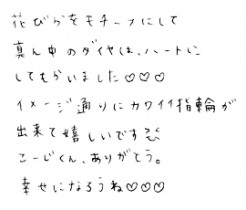 花びらをモチーフにして
真ん中のダイヤは、ハートに
してもらいました♡♡♡
イメージ通りにカワイイ指輪が
出来て嬉しいです
こーじくん、ありがとう。
幸せになろうね♡♡♡